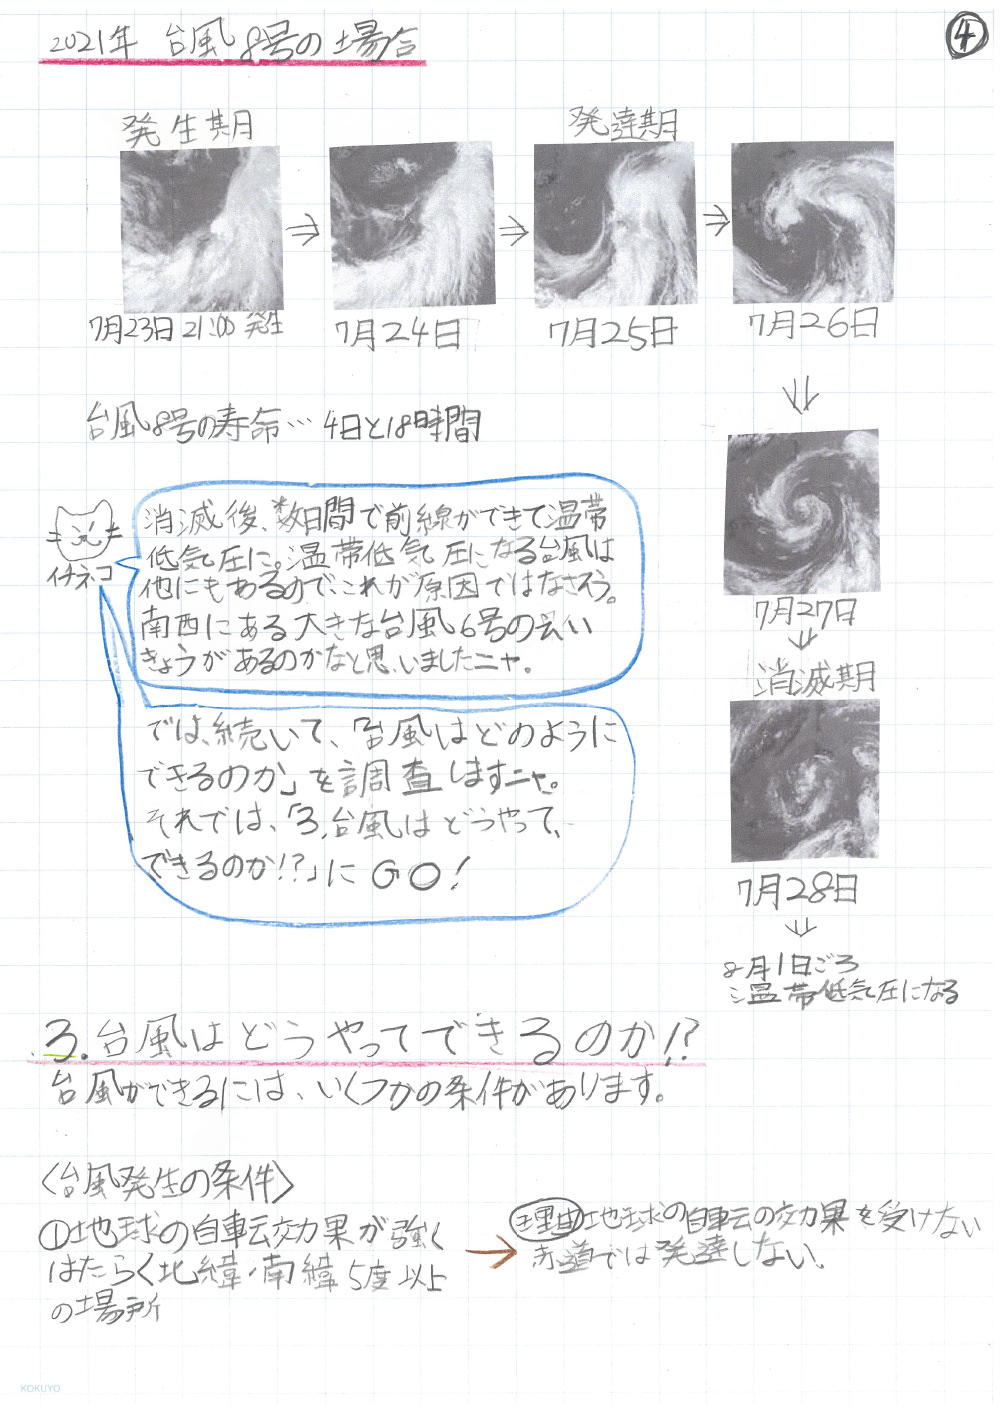 2021年 台風8号の場合
④
発生期
発達期
7月23日 21:00 発生
7月24日
7月25日
7月26日
台風8号の寿命… 4日と18時間
消滅後、数日間で前線ができて温帯
低気圧に。温帯低気圧になる台風は
他にもあるので、これが原因ではなさそう。
南西にある大きな台風6号のえい
きょうがあるのかなと思いましたニャ。
イチネコ
では、続いて、「台風はどのように
できるのか」を調査しますニャ。
それでは、「3.台風はどうやって、
できるのか!?」にGO!
7月27日
消滅期
7月28日
8月1日ごろ
温帯低気圧になる
3.台風はどうやってできるのか!?
台風ができるには、いくつかの条件があります。
〈台風発生の条件〉
①地球の自転効果が強く
はたらく北緯・南緯5度以上
の場所
理由 地球の自転の効果を受けない
赤道では発達しない。
KOKUYO